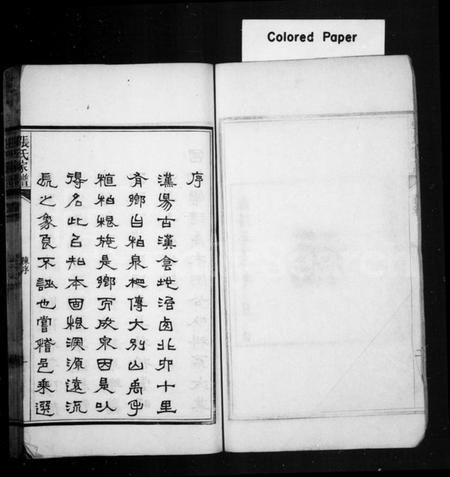 Colored Paper
序
漢陽古漢倉地治西北卯十里
有鄉曰柏泉相傳大別山禹手
植柏根旋是鄉而成泉因是以
得名此占知本固根深源遠流
長之象良不誣也嘗稽邑乘選
張氏家譜
序